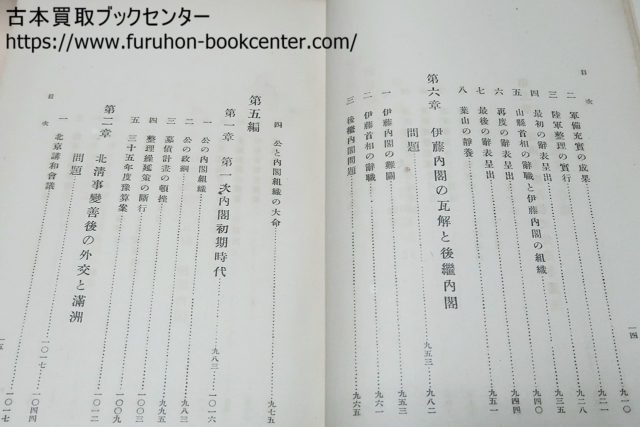 古本買取ブックセンター
https://www.furuhon-bookcenter.com/
目次
一四
二 軍備充實の成果……九一〇
三 陸軍整理の實行……九二八
四 最初の辭表呈出……九四〇
五 山縣首相の辭職と伊藤內閣の組織……九四四
六 再度の辭表呈出
七 最後の辭表呈出……九五一
八 葉山の靜養
第六章 伊藤內閣の瓦解と後繼內閣
問題……九五三—九八二
一 伊藤內閣の難關……九五三
二 伊藤首相の辭職……九六一
三 後繼內閣問題……九六五
四 公と內閣組織の大命……九七五
第五編
第一章 第一次內閣初期時代……九八三—一〇一六
一 公の內閣組織
二 公の政綱
三 募債計畫の頓挫……九九五
四 整理繰延策の斷行……一〇〇三
五 三十五年度豫算案……一〇〇九
第二章 北清事變善後の外交と滿洲
問題……一〇一七—一〇四四
一 北京講和會議……一〇一七
目次
一五